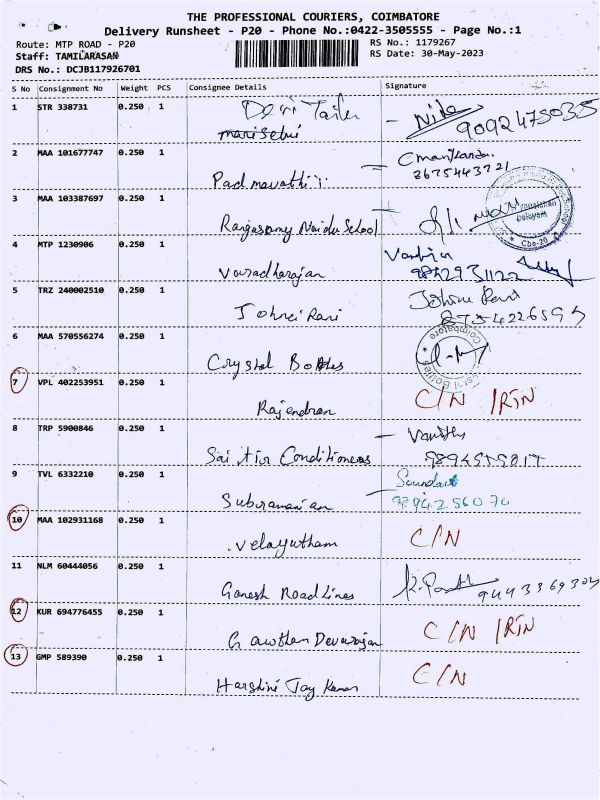 THE PROFESSIONAL COURIERS, COIMBATORE
Delivery Runsheet - P20 - Phone No.:0422-3505555 - Page No.:1
Route: MTP ROAD - P20 RS No.: 1179267
Staff: TAMILARASAN RS Date: 30-May-2023
DRS No.: DCJB117926701
S No Consignment No Weight PCS Consignee Details Signature
1 STR 338731 0.250 1 Devi Tailer
9092475035
2 MAA 101677747 0.250 1
Padmavathi 8675443721
3 MAA 103387697 0.250 1
Rangasamy Naidu School
Cbe-20
4 MTP 1230906 0.250 1
Varadharajan 9842931122
5 TRZ 240002510 0.250 1
Johnci Rani 8754226593
6 MAA 570556274 0.250 1
Crystal Bottles
Coimbatore
7 VPL 402253951 0.250 1 C/N /RTN
Rajendran
8 TRP 5900846 0.250 1
Sai Air Conditioners
9 TVL 6332210 0.250 1
Subramanian
10 MAA 102931168 0.250 1 C/N
Velayutham
11 NLM 60444056 0.250 1
Ganesh Road Lines
12 KUR 694776455 0.250 1 C/N /RTN
Gowtham Devarajan
13 GMP 589390 0.250 1 C/N
Harshini Jay Kumar